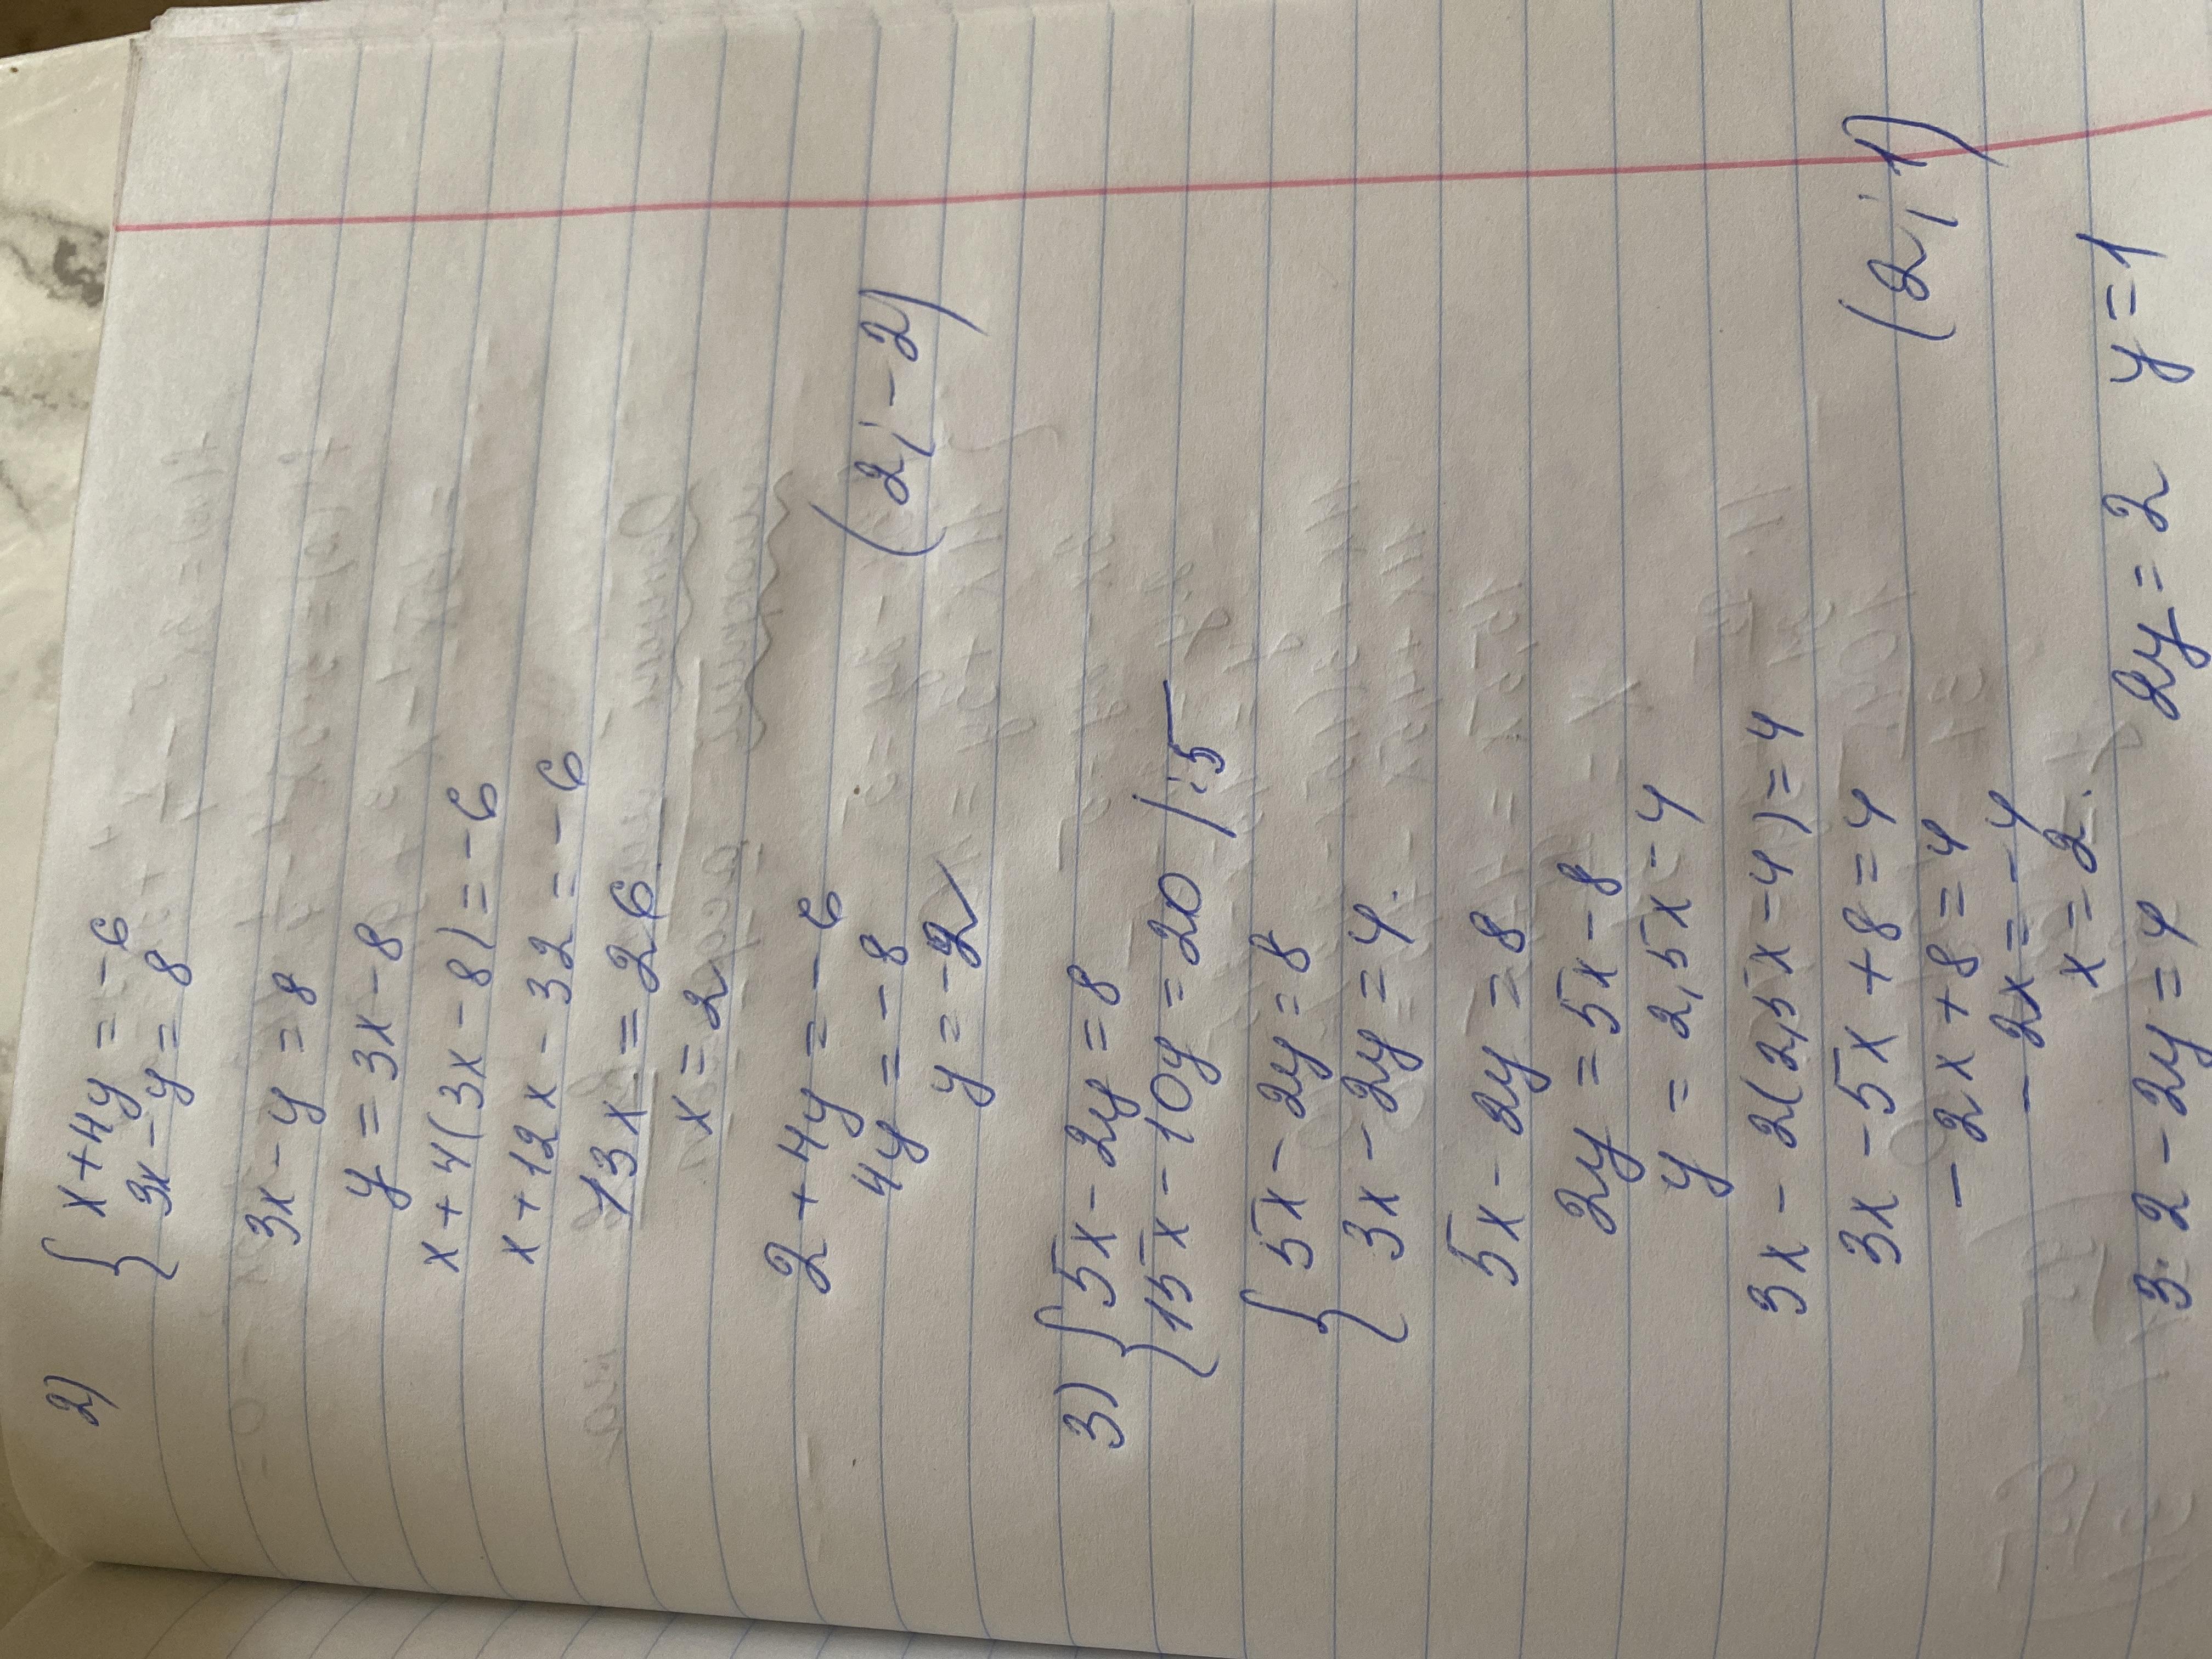 2) { x+4y=-6
3x-y=8
3x-y=8
y=3x-8
x+4(3x-8)=-6
x+12x-32=-6
13x=26
x=2
2+4y=-6
4y=-8
y=-2
(2;-2)
3) { 5x-2y=8
15x-10y=20 /:5
{ 5x-2y=8
3x-2y=4.
5x-2y=8
2y=5x-8
y=2,5x-4
3x-2(2,5x-4)=4
3x-5x+8=4
-2x+8=4
-2x=-4
x=2.
(2;1)
3·2-2y=4 2y=2 y=1